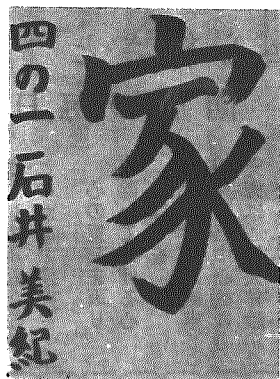 家
四の一 石井美紀